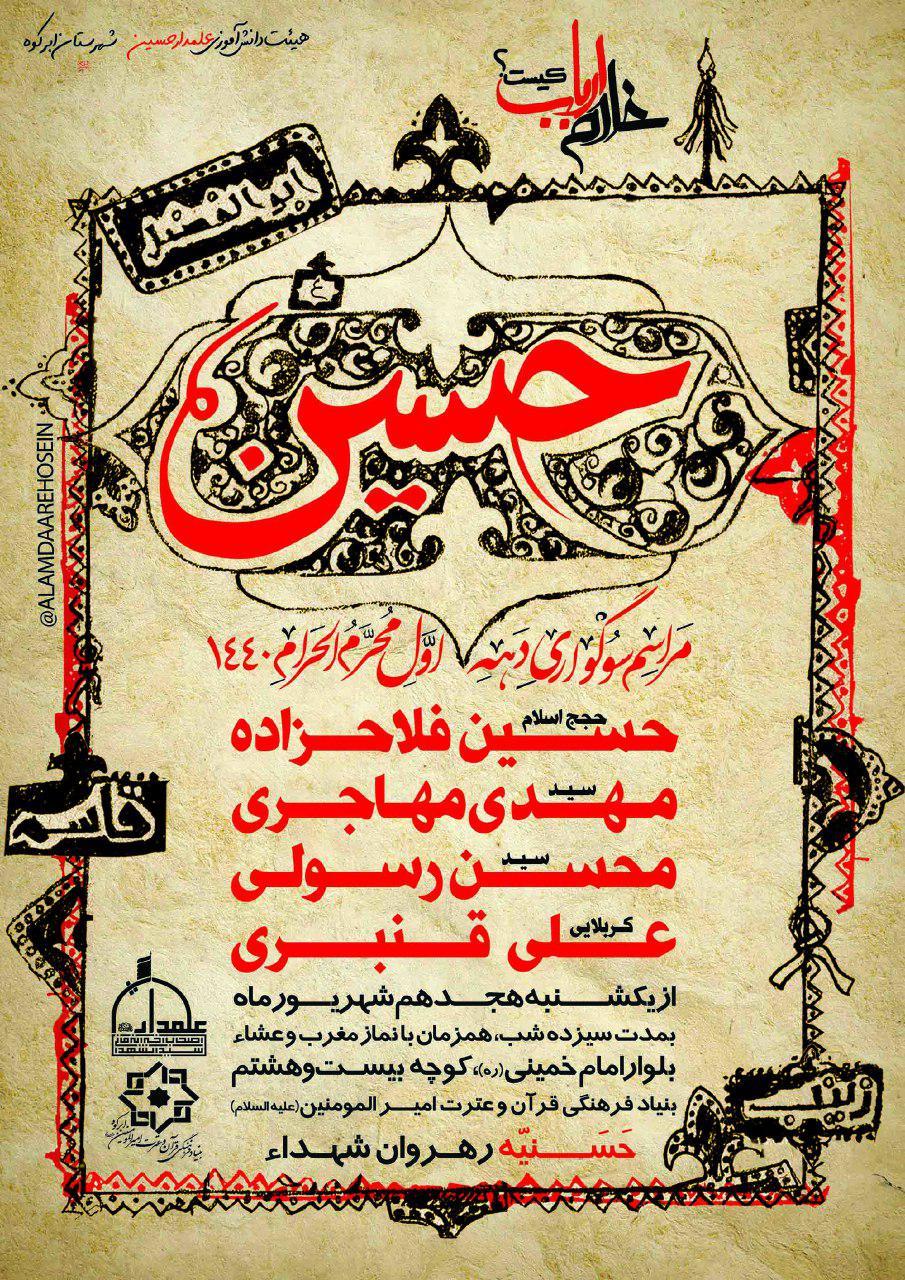 هیئت دانش‌آموزی علمدار حسین شهرستان ابرکوه
خادم ارباب کیست؟
ابوالفضل
حسین
@ALAMDAAREHOSEIN
مَراسِمِ سوُگوُاریِ دِهِهِ اوَّلِ مُحَرَّمُ الحَرامِ ۱۴۴۰
حجج اسلام
حسین فلاحزاده
سید
مهدی مهاجری
سید
محسن رسولی
کربلایی
علی قنبری
قاسم
از یکشنبه هجدهم شهریور ماه
بمدت سیزده شب، همزمان با نماز مغرب و عشاء
بلوار امام خمینی (ره)، کوچه بیست و هشتم
بنیاد فرهنگی قرآن و عترت امیر المومنین (علیه السلام)
حَسَنیّه رهروان شهداء
زینب
علمدار
بنیاد فرهنگی قرآن و عترت امیرالمومنین ابرکوه